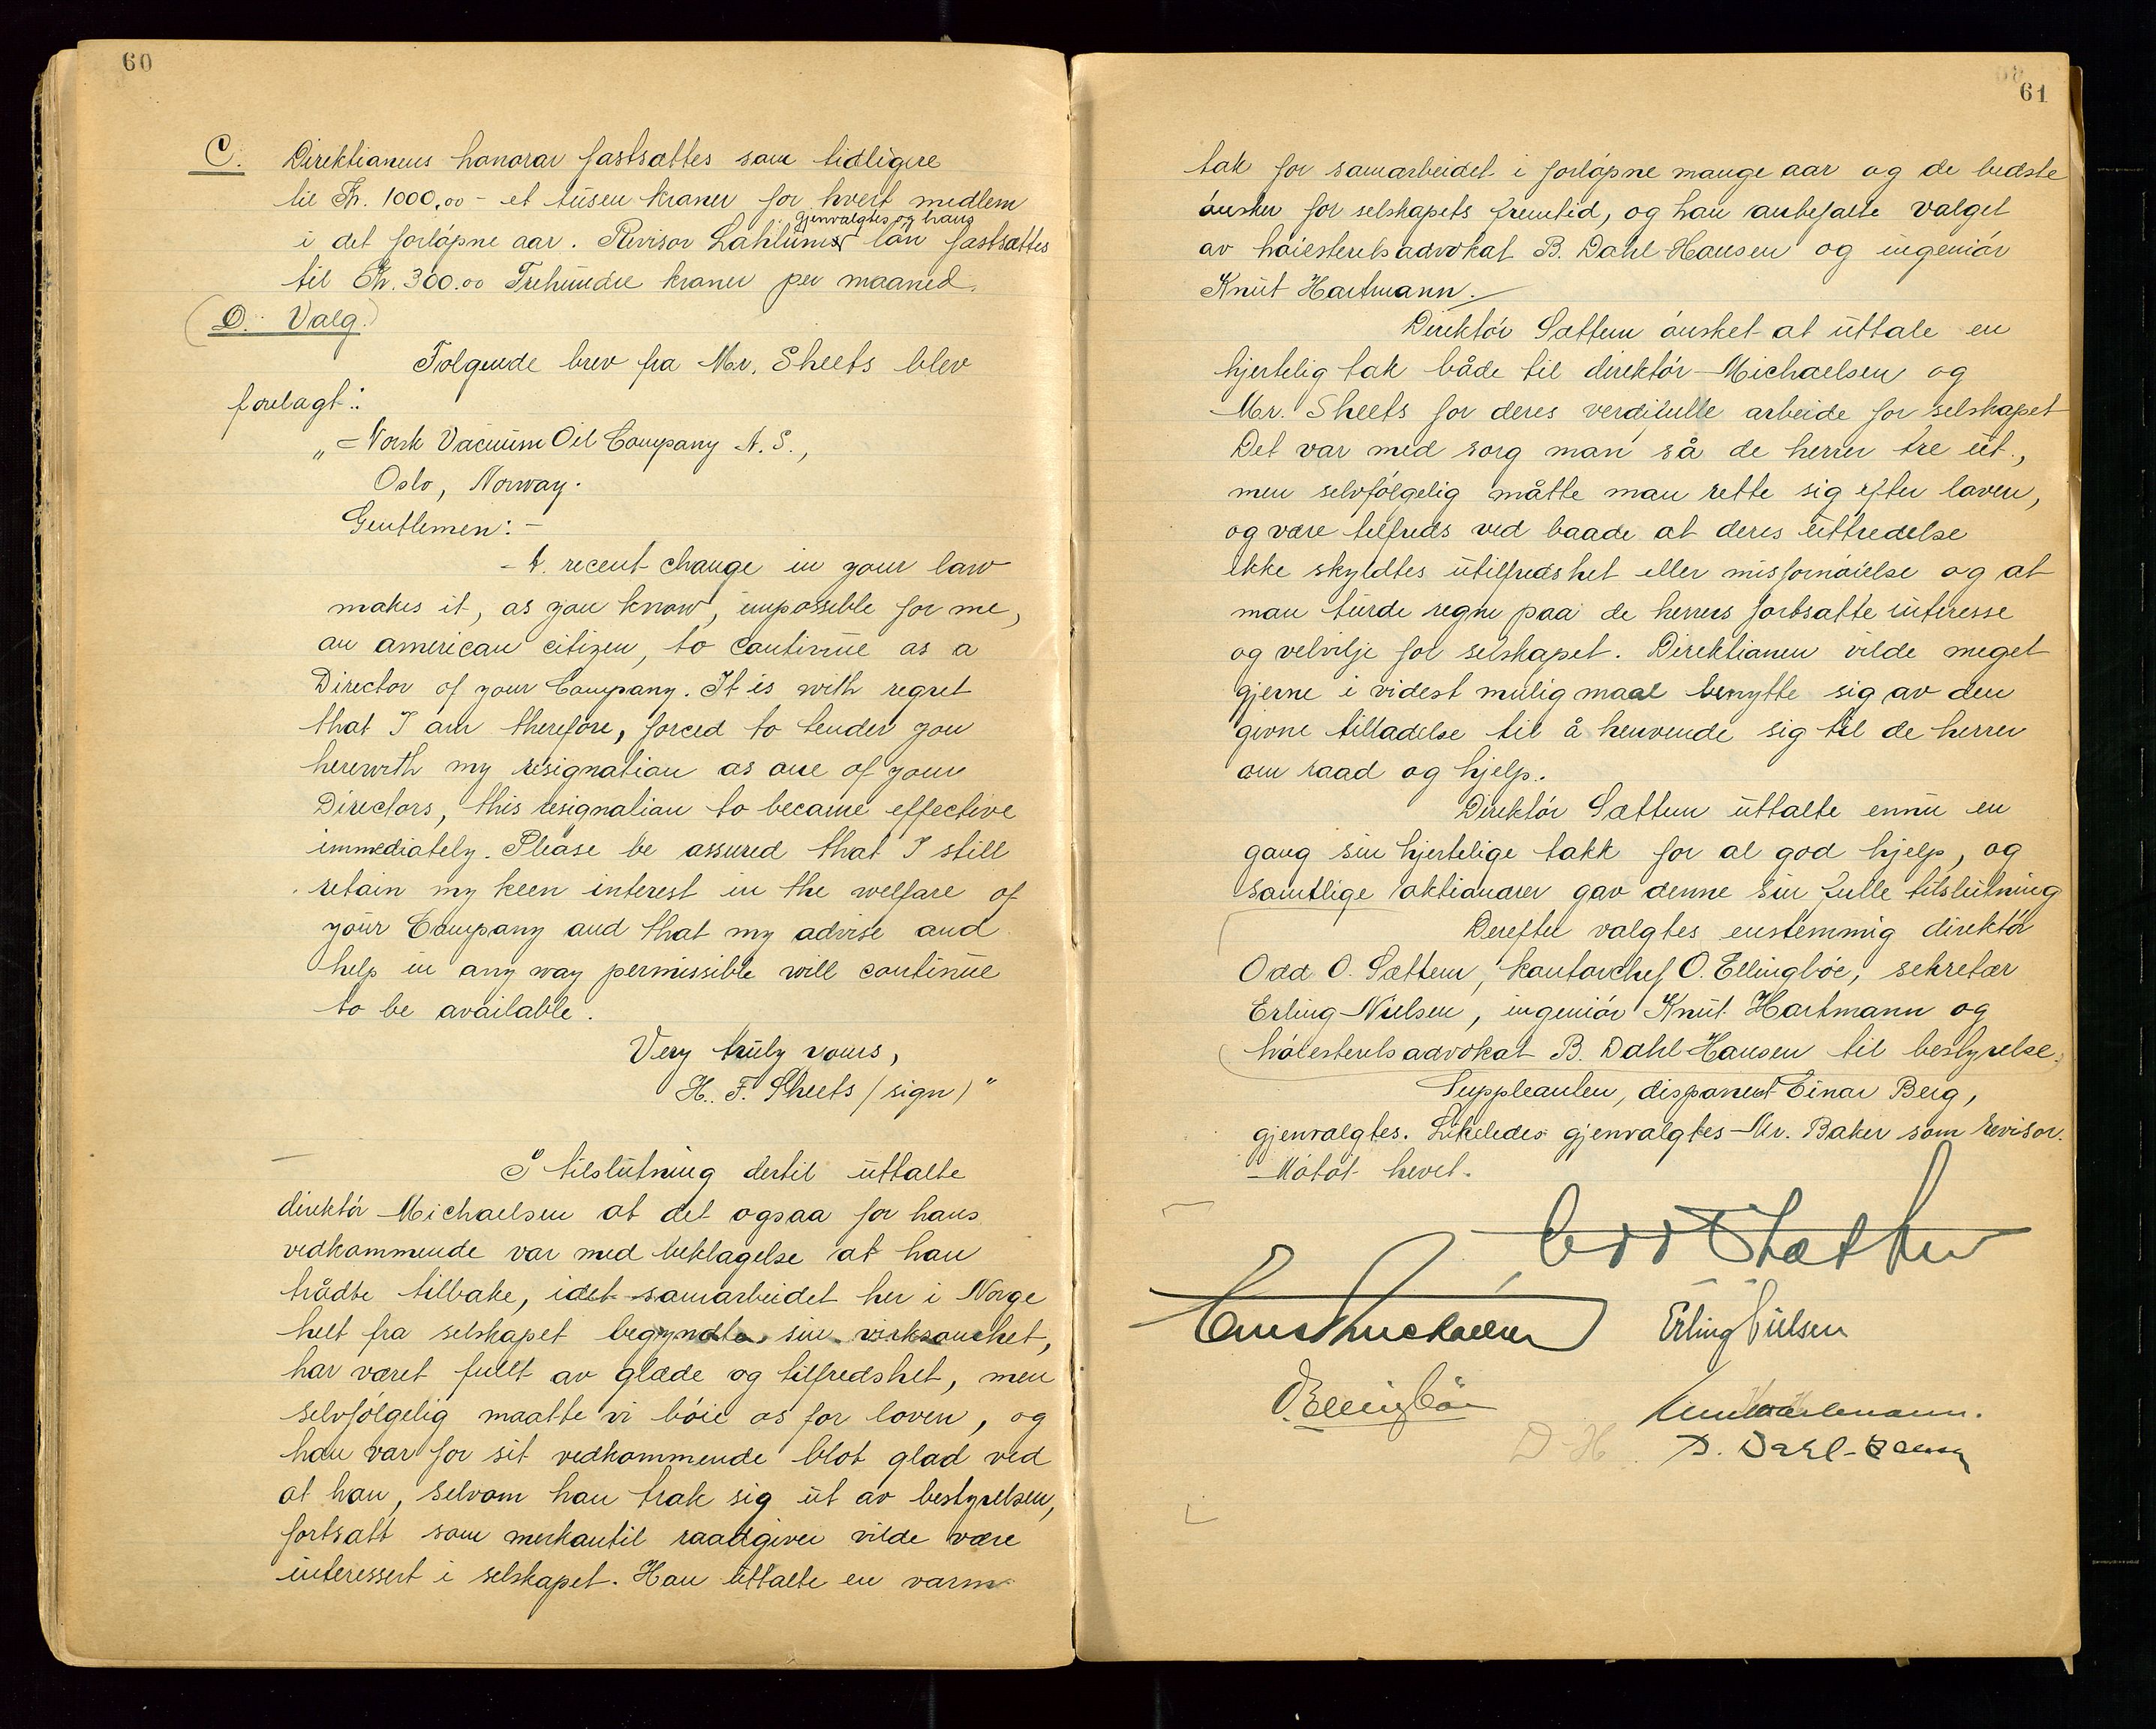 60
C. Direktionens honorar fastsættes som tidligere
til Kr. 1000,00 - et tusen kroner for hvert medlem
gjenvalgtes og hans
i det forløpne aar. Revisor Lahlums løn fastsættes
til Kr. 300.00 Trehundre kroner per maaned.
D. Valg.
Følgende brev fra Mr. Sheets blev
forelagt:
„Norsk Vacuum Oil Company A.S.,
Oslo, Norway.
Gentlemen:-
A recent change in your law
makes it, as you know, impossible for me,
an american citizen, to continue as a
Director of your Company. It is with regret
that I am therefore, forced to tender you
herewith my resignation as one of your
Directors, this resignation to became effective
immediately. Please be assured that I still
retain my keen interest in the welfare of
your Company and that my advise and
help in any way permissible will continue
to be available.
Very truly yours,
H. F. Sheets (sign)"
I tilslutning dertil uttalte
direktør Michaelsen at det ogsaa for hans
vedkommende var med beklagelse at han
trådte tilbake, idet samarbeidet her i Norge
helt fra selskapet begyndte sin virksomhet,
har været fullt av glæde og tilfredshet, men
selvfølgelig maatte vi bøie os for loven, og
han var for sit vedkommende blot glad ved
at han, selvom han trak sig ut av bestyrelsen,
fortsatt som merkantil raadgiver vilde være
interessert i selskapet. Han uttalte en varm
61
tak for samarbeidet i forløpne mange aar og de bedste
ønsker for selskapets fremtid, og han anbefalte valget
av høiesteretsadvokat B. Dahl-Hansen og ingeniør
Knut Hartmann.
Direktør Sættem ønsket at uttale en
hjertelig tak både til direktør Michaelsen og
Mr. Sheets for deres verdifulle arbeide for selskapet
Det var med sorg man så de herrer tre ut,
men selvfølgelig måtte man rette sig efter loven,
og være tilfreds ved baade at deres uttredelse
ikke skyldtes utilfredshet eller misfornøielse og at
man turde regne paa de herrers fortsatte interesse
og velvilje for selskapet. Direktionen vilde meget
gjerne i videst mulig maal benytte sig av den
givne tilladelse til å henvende sig til de herrer
om raad og hjelp.
Direktør Sættem uttalte ennu en
gang sin hjertelige takk for al god hjelp, og
samtlige aktionærer gav denne sin fulle tilslutning
Derefter valgtes enstemmig direktør
Odd O. Sættem, kontorchef O. Ellingbøe, sekretær
Erling Nielsen, ingeniør Knut Hartmann og
høiesteretsadvokat B. Dahl-Hansen til bestyrelse.
Suppleanten, disponent Einar Berg,
gjenvalgtes. Likeledes gjenvalgtes Mr. Baker som revisor.
Møtet hevet.
Odd O Sættem
Erling Nielsen
O. Ellingbøe
Knut Hartmann.
D-H. B. Dahl-Hansen